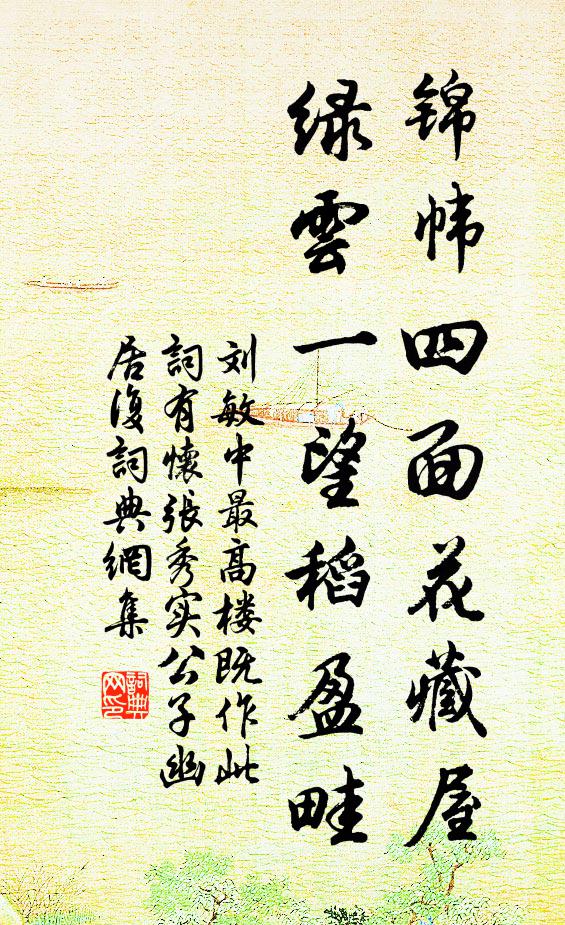 锦帏四面花藏屋
绿雲一望稻盈畦
刘敏中最高楼既作此
詞有懷張秀实公子幽
居復詞典網集
詞典
网印